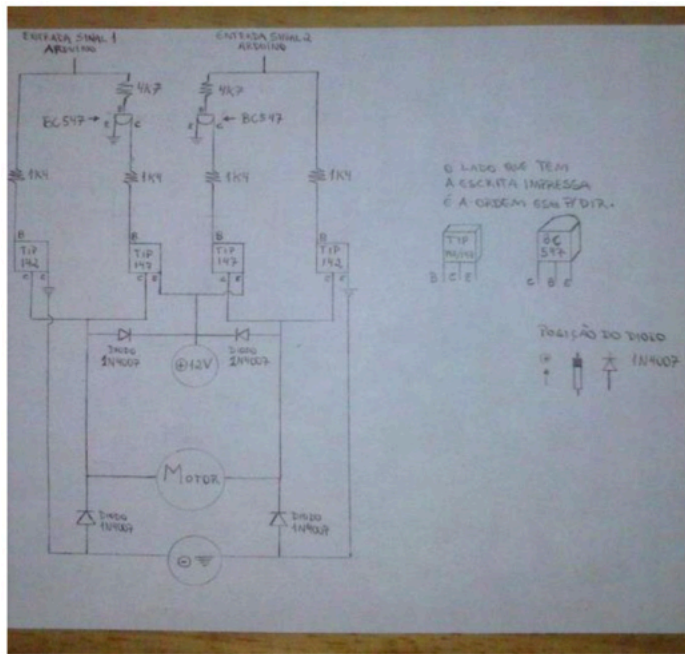 ENTRADA SINAL 1
ARDUINO
ENTRADA SINAL 2
ARDUINO
4K7
4K7
B
B
E
C
E
C
BC547
BC547
1K4
1K4
1K4
1K4
B
TIP
142
C
E
B
TIP
147
C
E
B
TIP
147
C
E
B
TIP
142
C
E
DIODO
1N4007
DIODO
1N4007
+12V
MOTOR
DIODO
1N4007
DIODO
1N4007
O LADO QUE TEM
A ESCRITA IMPRESSA
É A ORDEM ESQ P/ DIR.
TIP
B C E
BC
547
C B E
POSIÇÃO DO DIODO
1N4007